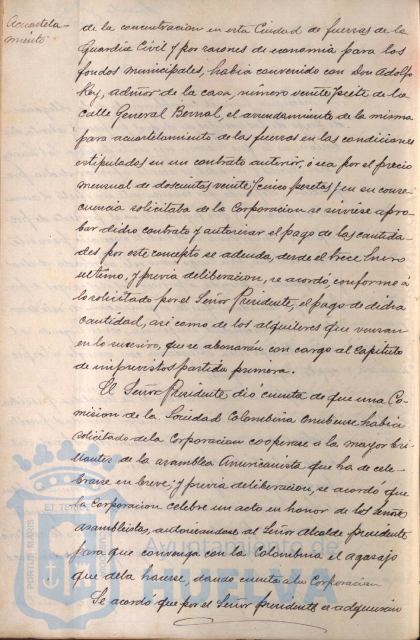 Acuartela-
miento
de la concentracion en esta Ciudad de fuerzas de la
Guardia Civil y por razones de economia para los
fondos municipales, habia convenido con Don Adolfo
Rey, adñor de la casa, número veinte y siete de la
calle General Bernal, el arrendamiento de la misma
para acuartelamiento de las fuerzas en las condiciones
estipuladas en un contrato anterior, ó sea por el precio
mensual de doscientas veinte y cinco pesetas y en su conse-
cuencia solicitaba de la Corporacion se sirviese apro-
bar dicho contrato y autorizar el pago de las cantida
des por este concepto se adeuda, desde el trece Enero
ultimo, y previa deliberacion, se acordó, conforme á
lo solicitado por el Señor Presidente, el pago de dicha
cantidad, asi como de los alquileres que venzan
en lo sucesivo, que se abonarán con cargo al Capitulo
de imprevistos partida primera.
El Señor Presidente dió cuenta de que una Co-
mision de la Sociedad Colombina Onubense, habia
solicitado de la Corporacion cooperase á la mayor bri-
llantez de la asamblea Americanista que ha de cele-
brarse en breve; y previa deliberacion, se acordó que
la Corporacion celebre un acto en honor de los Señores
asambleistas, autorizandose al Señor Alcalde presidente
para que convenga con la Colombina el agasajo
que deba hacerse, dando cuenta á la Corporacion
Se acordó que por el Señor presidente se adquirieran
PORTUS MARIS
ET TERRÆ
Ayuntamiento de
HUELVA